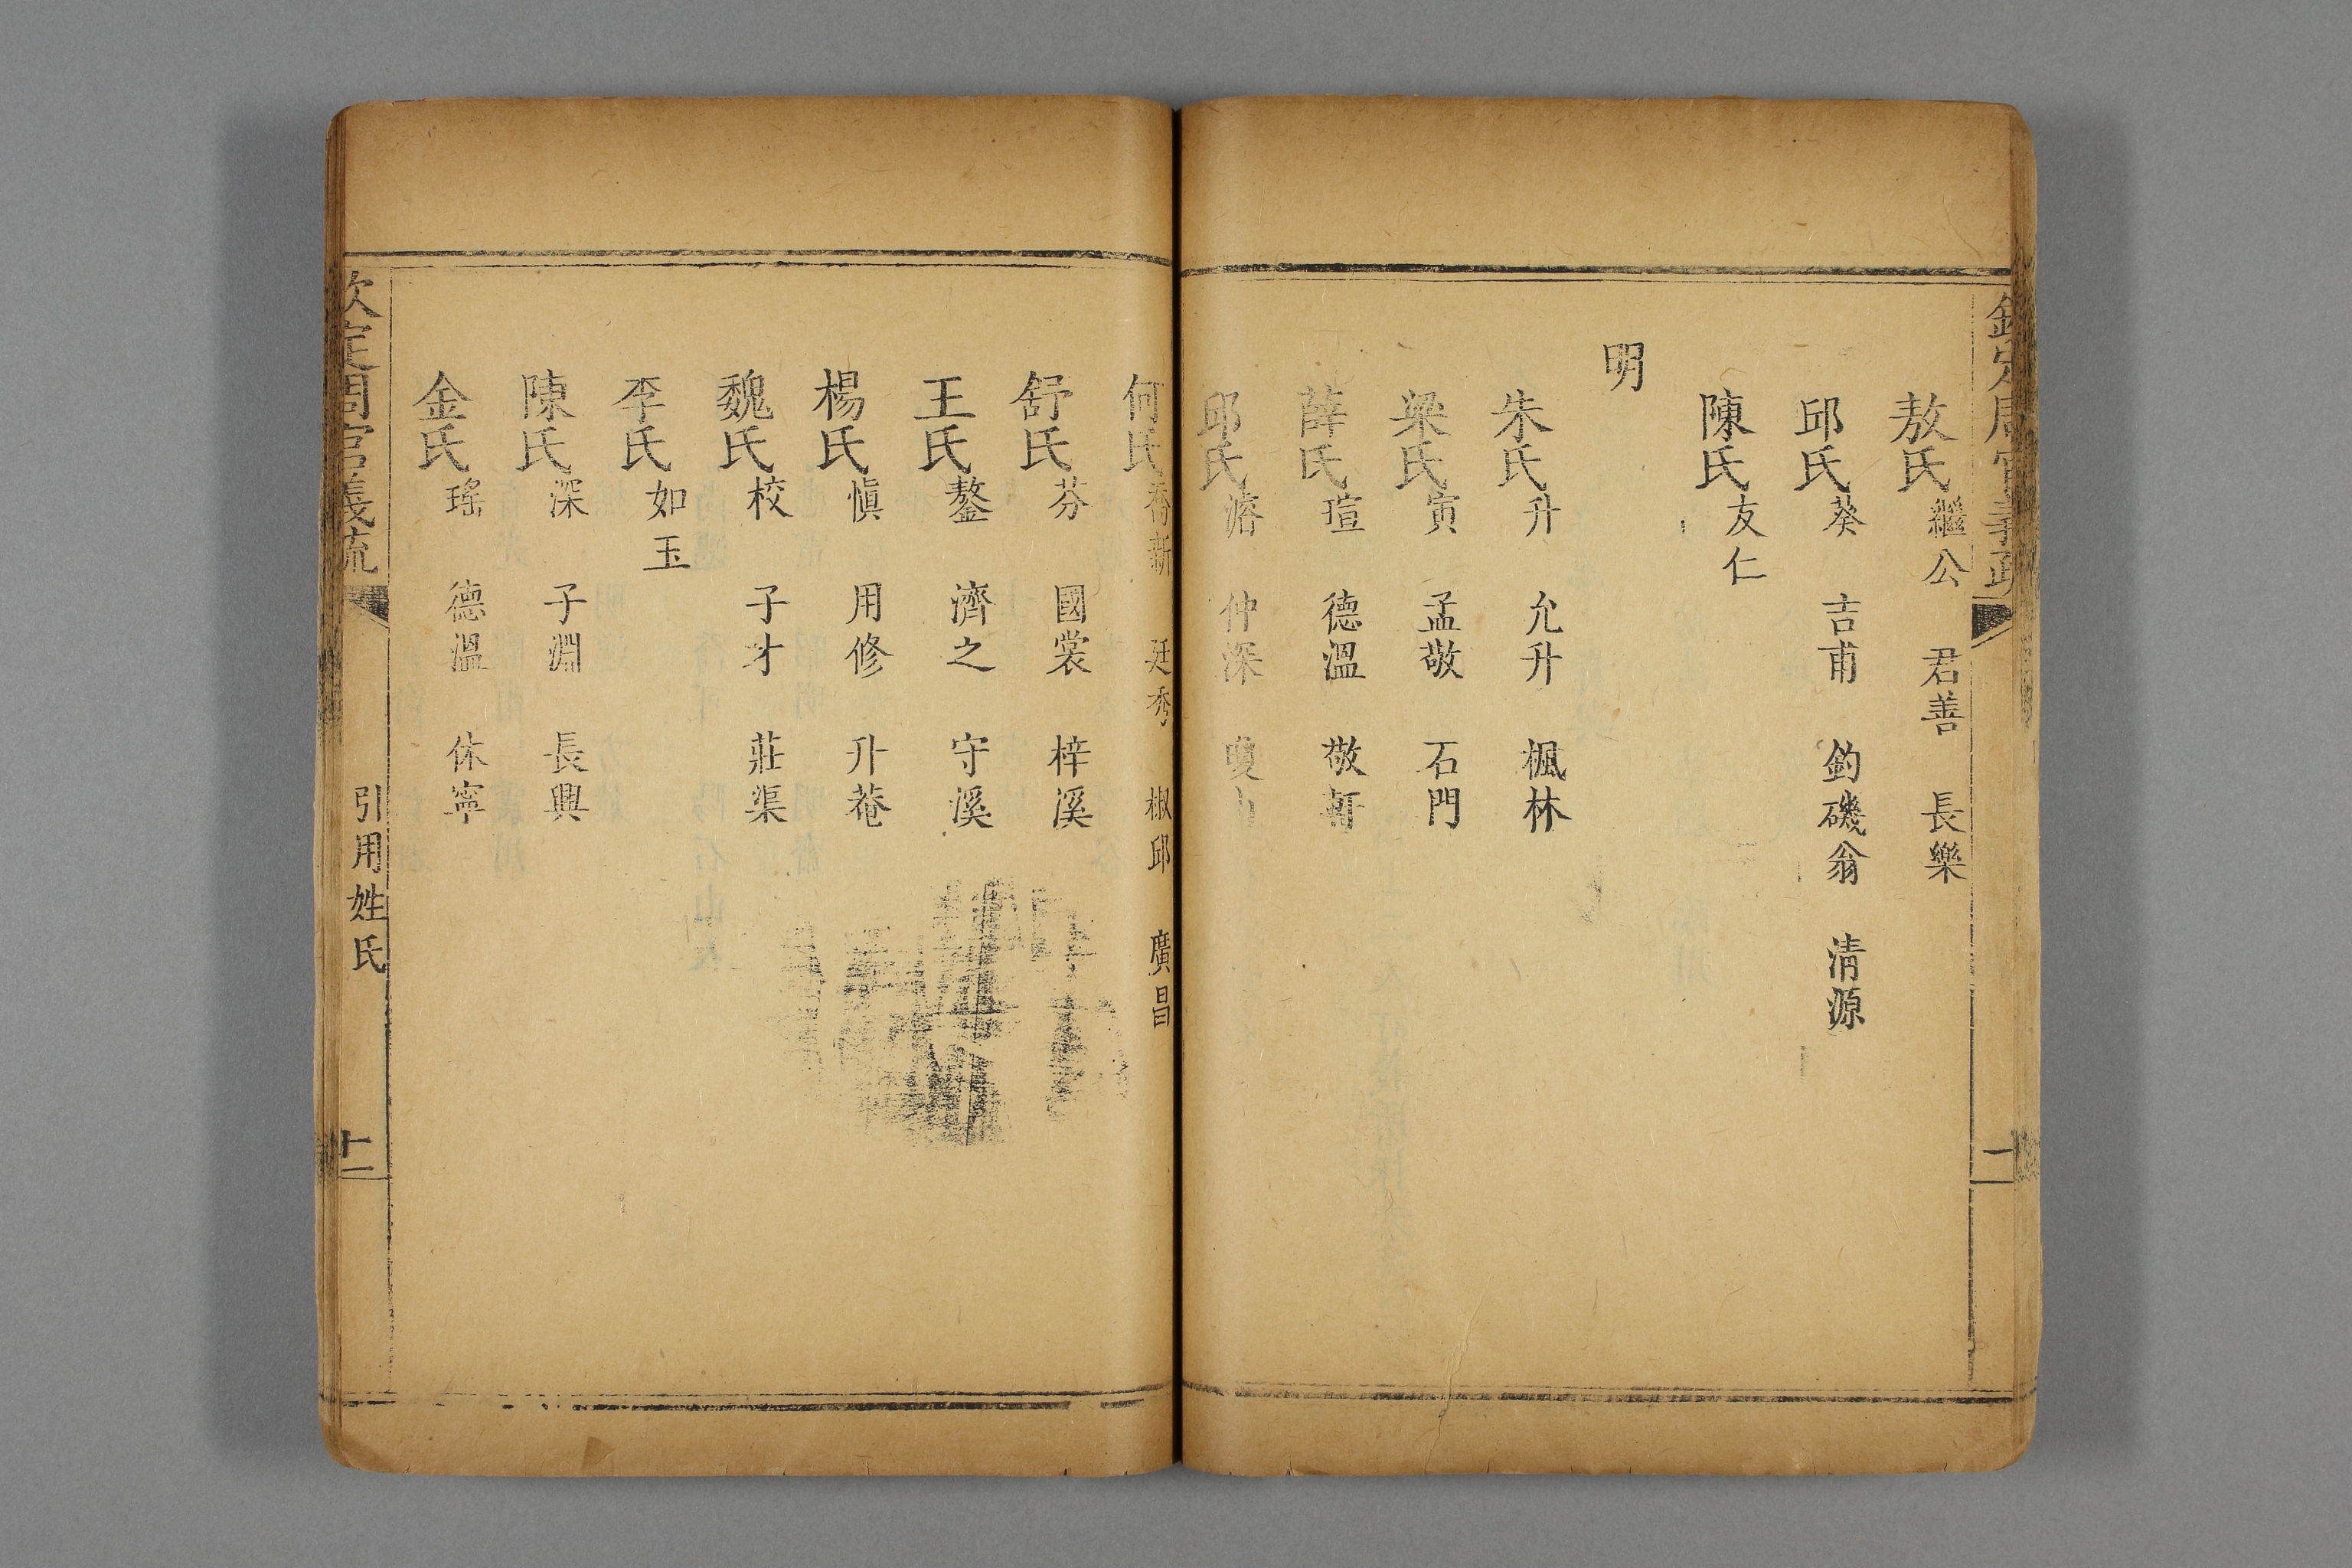 欽定周官義疏
敖氏 繼公 君善 長樂
邱氏 葵 吉甫 釣磯翁 清源
陳氏 友仁
明
朱氏 升 允升 楓林
梁氏 寅 孟敬 石門
薛氏 瑄 德溫 敬軒
邱氏 濬 仲深 瓊山
何氏 喬新 廷秀 椒邱 廣昌
舒氏 芬 國裳 梓溪
王氏 鏊 濟之 守溪
楊氏 慎 用修 升菴
魏氏 校 子才 莊渠
李氏 如玉
陳氏 深 子淵 長興
金氏 瑤 德溫 休寧
欽定周官義疏 引用姓氏 十一